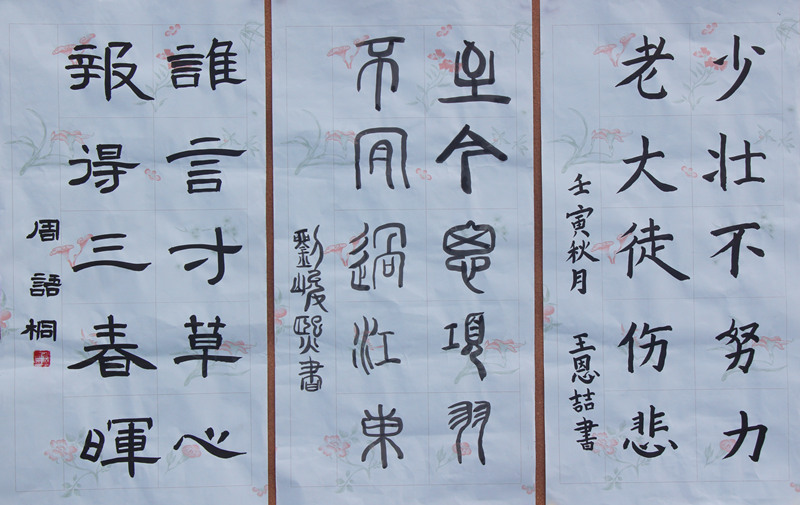 少壮不努力
老大徒伤悲
壬寅秋月 王恩詰書
至今思項羽
不肯過江東
劉峻熙書
誰言寸草心
報得三春暉
周語桐